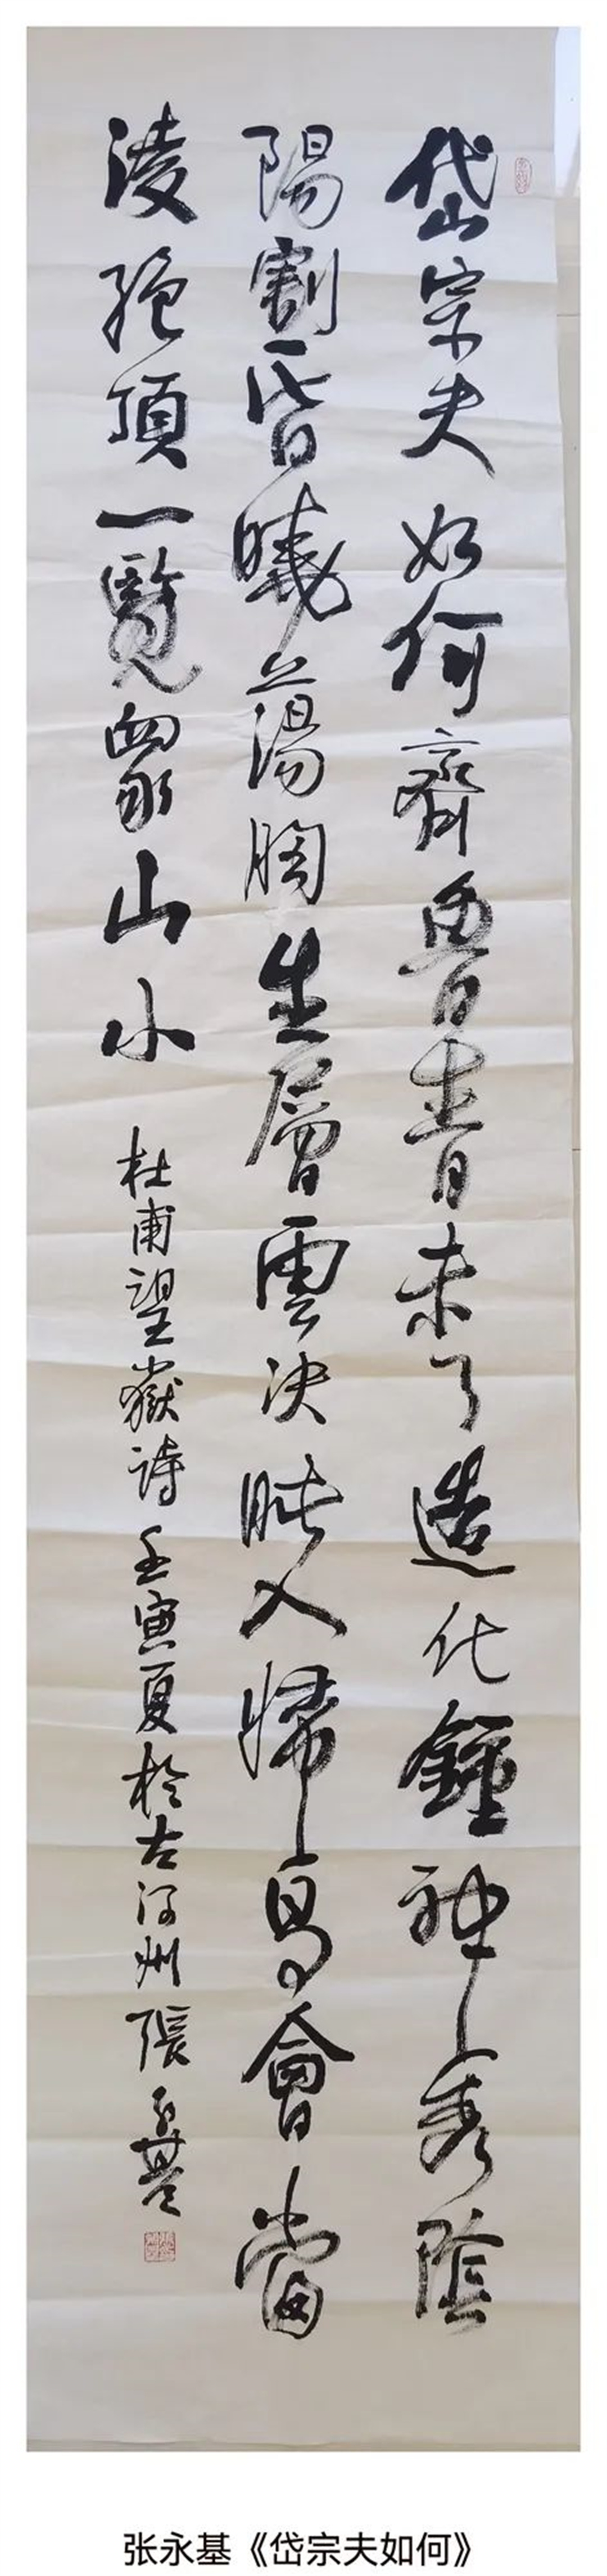 岱宗夫如何齊魯青未了造化鍾神秀陰
陽割昏曉蕩胸生層雲决眦入歸鳥會當
淩絕頂一覽衆山小 杜甫望嶽詩 壬寅夏於古河州張永基
张永基《岱宗夫如何》